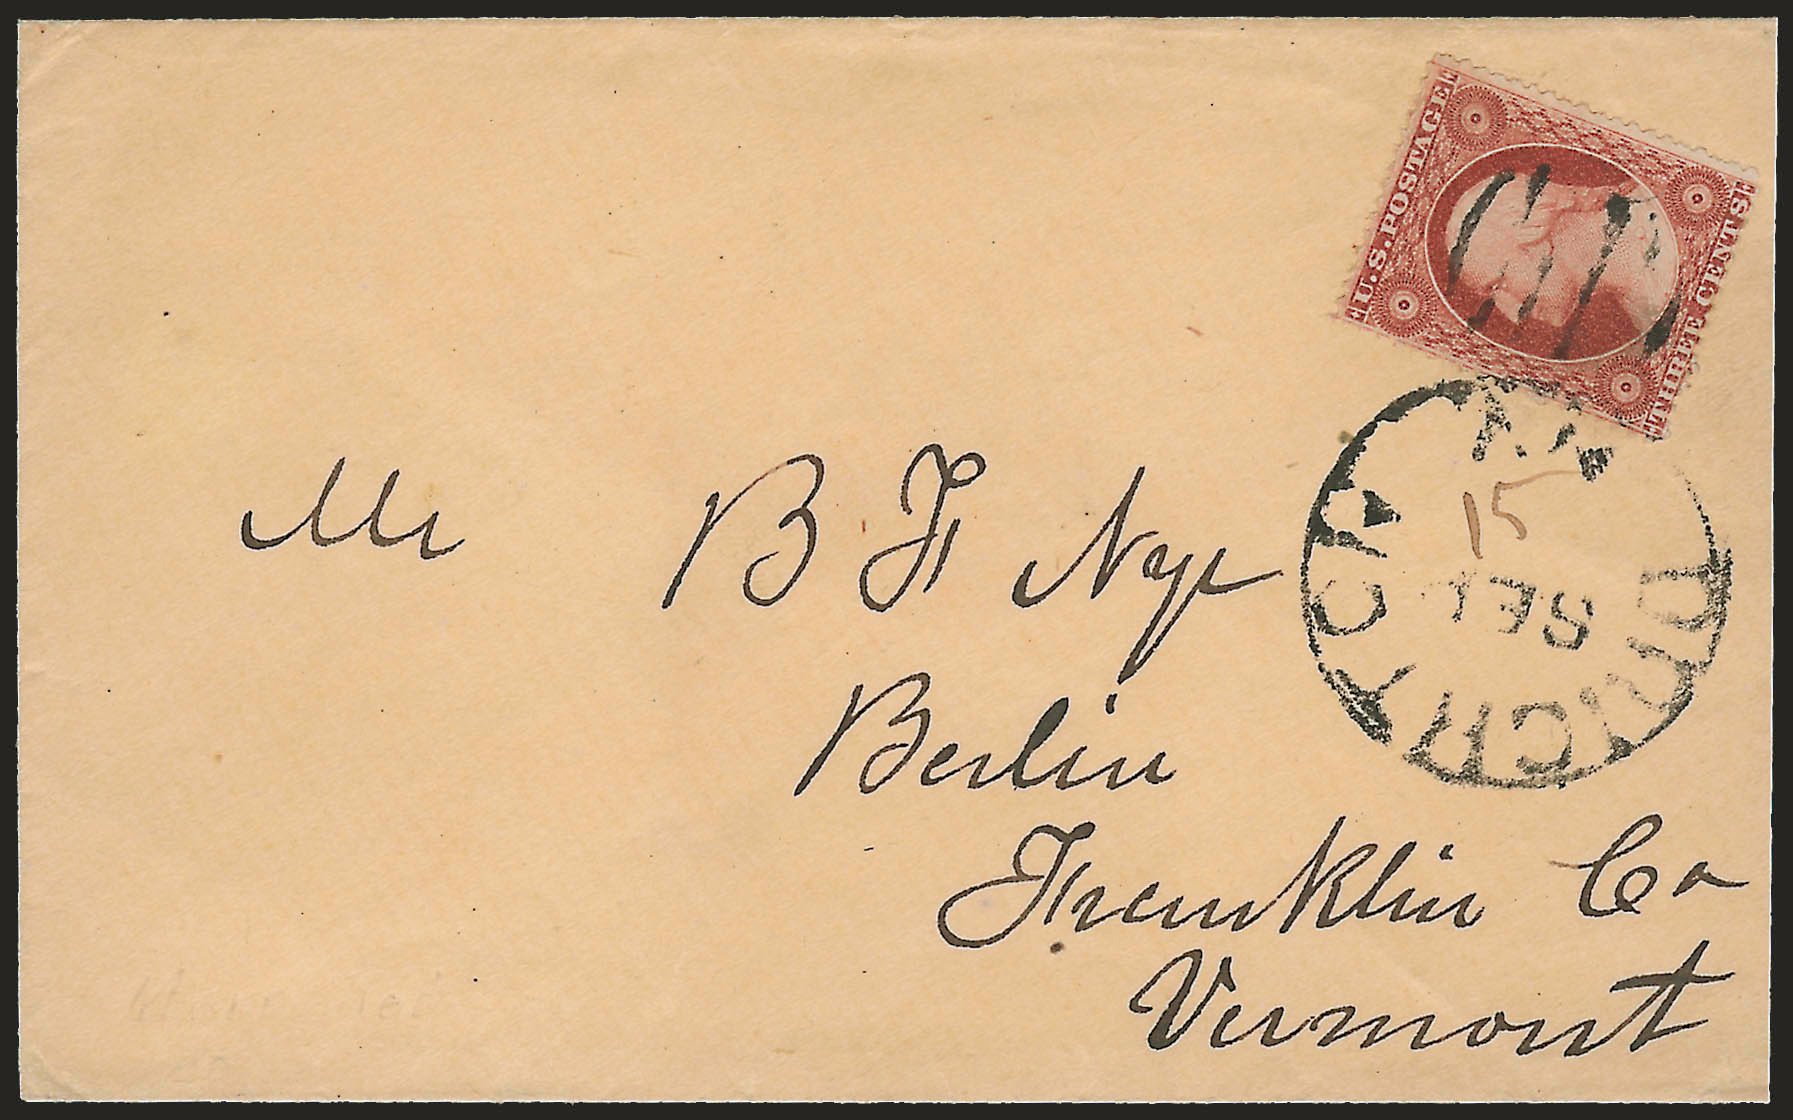 U.S. POSTAGE
THREE CENTS
Mr B F Nye
15
SEP
Berlin
Franklin Co
Vermont